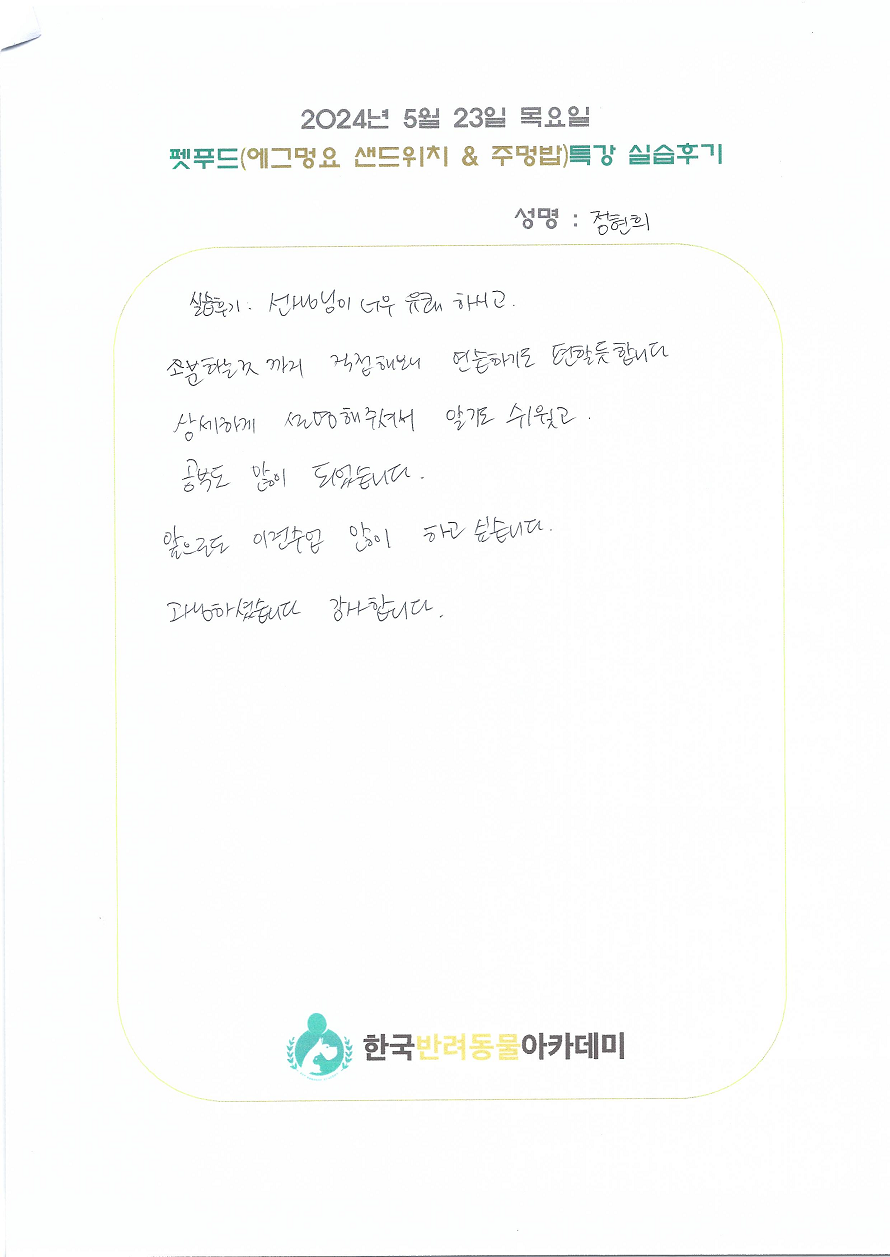 2024년 5월 23일 목요일
펫푸드(에그멍요 샌드위치 & 주멍밥)특강 실습후기
성명 : 정현희
실습후기. 선생님이 너무 유쾌 하시고.
소분하는것 까지 직접해보니 연습하기도 편할듯합니다
상세하게 설명해주셔서 알기도 쉬웠고.
공부도 많이 되었습니다.
앞으로도 이런수업 많이 하고 싶습니다.
고생하셨습니다 감사합니다.
한국반려동물아카데미